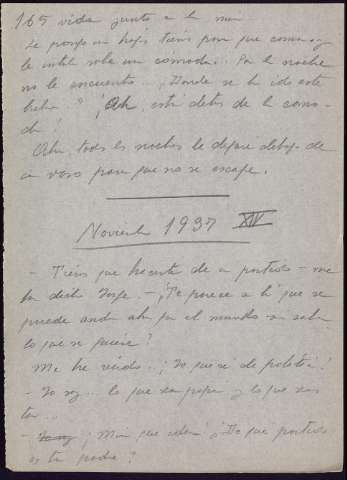 165 vida junto a la mía
Le pongo un hojas tiernas para que coma y
le instalo sobre una cómoda. Por la noche
no le encuentro. ¿Donde se ha ido este
bicho? ¡Ah, está detrás de la como-
da!
Ahora, todas las noches le dejaré debajo de
un vaso para que no se escape.
Noviembre 1937 XIV
- Tienes que hacerte de un partido - me
ha dicho Jorge. - ¿Te parece a ti que se
puede andar ahora por el mundo sin saber
lo que se quiere?
Me he reído. ¡Yo que sé de política!
- Yo soy... lo que sea papá y lo que seas
tu...
- ¡Mira que eres! ¿De que partido
es tu padre?